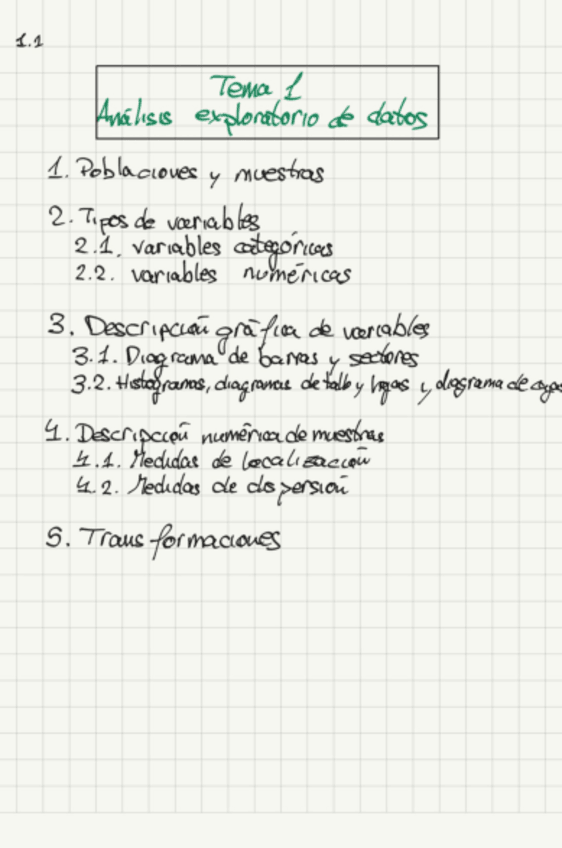 1.1
Tema 1
Análisis exploratorio de datos
1. Poblaciones y muestras
2. Tipos de variables
2.1. variables categóricas
2.2. variables numéricas
3. Descripción gráfica de variables
3.1. Diagrama de barras y sectores
3.2. Histogramas, diagramas de tallo y hojas y diagrama de cajas
4. Descripción numérica de muestras
4.1. Medidas de localización
4.2. Medidas de dispersión
5. Transformaciones